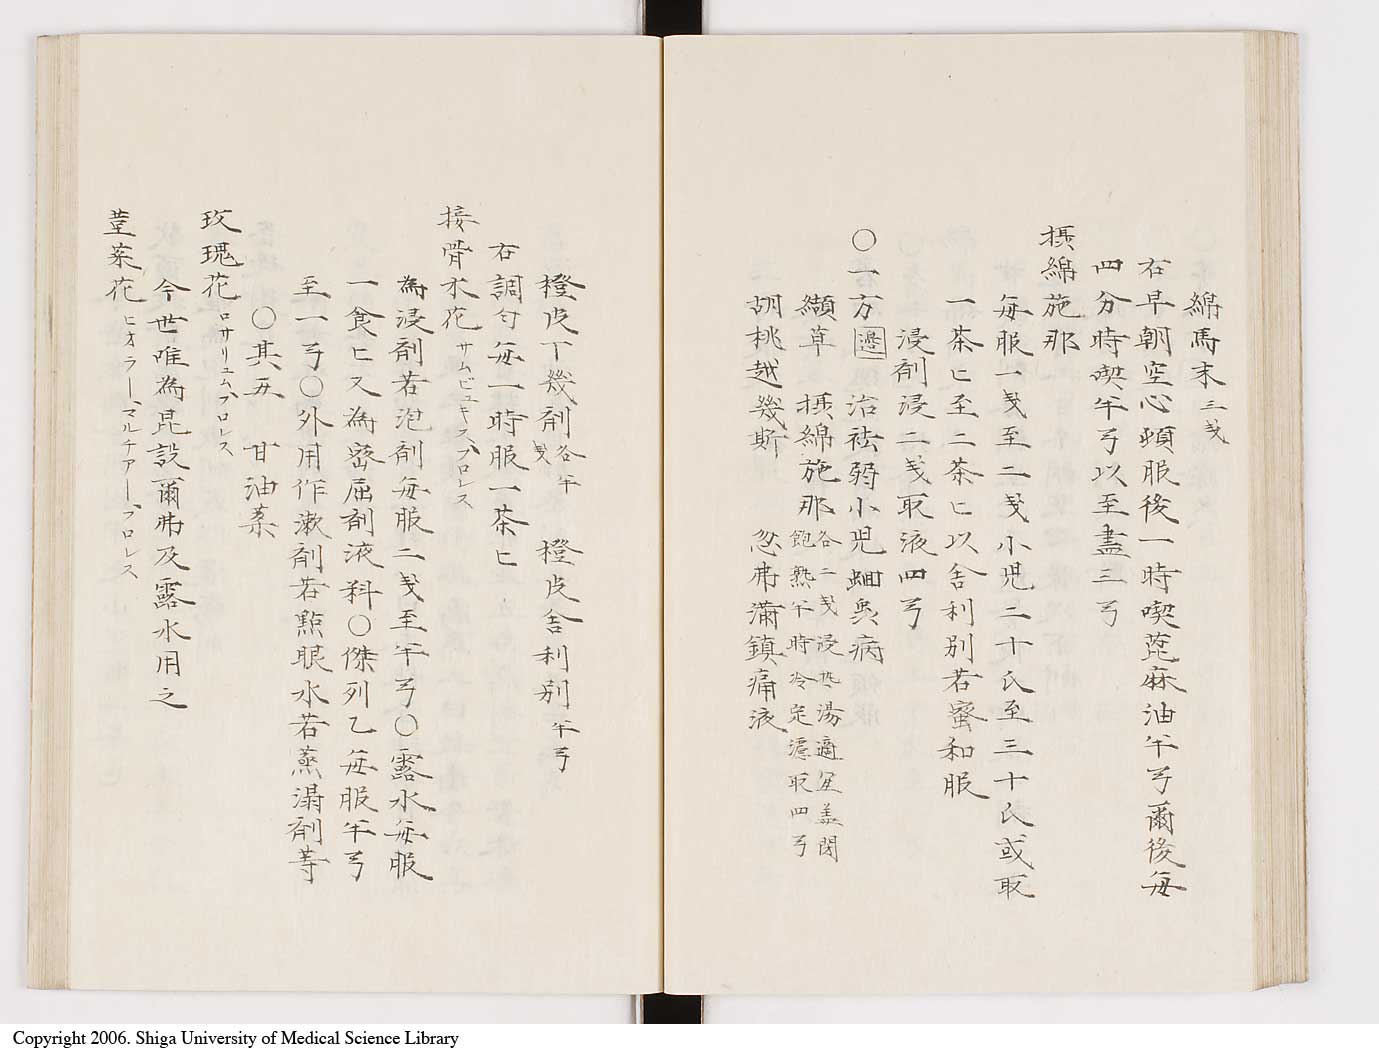 綿馬末 三戔
右早朝空心頓服後一時喫蓖麻油半弓爾後毎
四分時喫半弓以至盡三弓
摂綿施那
毎服一戔至二戔小児二十氏至三十氏或取
一茶匕至二茶匕以舎利別若蜜和服
浸剤浸二戔取液四弓
〇一方 邉 治祛弱小児蛔蟲病
纈草 摂綿施那 各二戔浸热湯適宜盖閉
飽熟午時冷定濾取四弓
胡桃越幾斯 忽弗満鎮痛液
橙皮丁幾剤 各半戔 橙皮舎利別 半弓
右調匀毎一時服一茶匕
接骨木花 サムビュキス、フロレス
為浸剤若泡剤毎服二戔至半弓〇露水毎服
一食匕又為密屈剤液料〇傑列乙毎服半弓
至一弓〇外用作漱剤若點眼水若蒸溻剤等
〇其五 甘油薬
玫瑰花 ロサリュム、フロレス
今世唯為昆設爾弗及露水用之
菫菜花 ヒオラー、マルチアー、フロレス
Copyright 2006. Shiga University of Medical Science Library